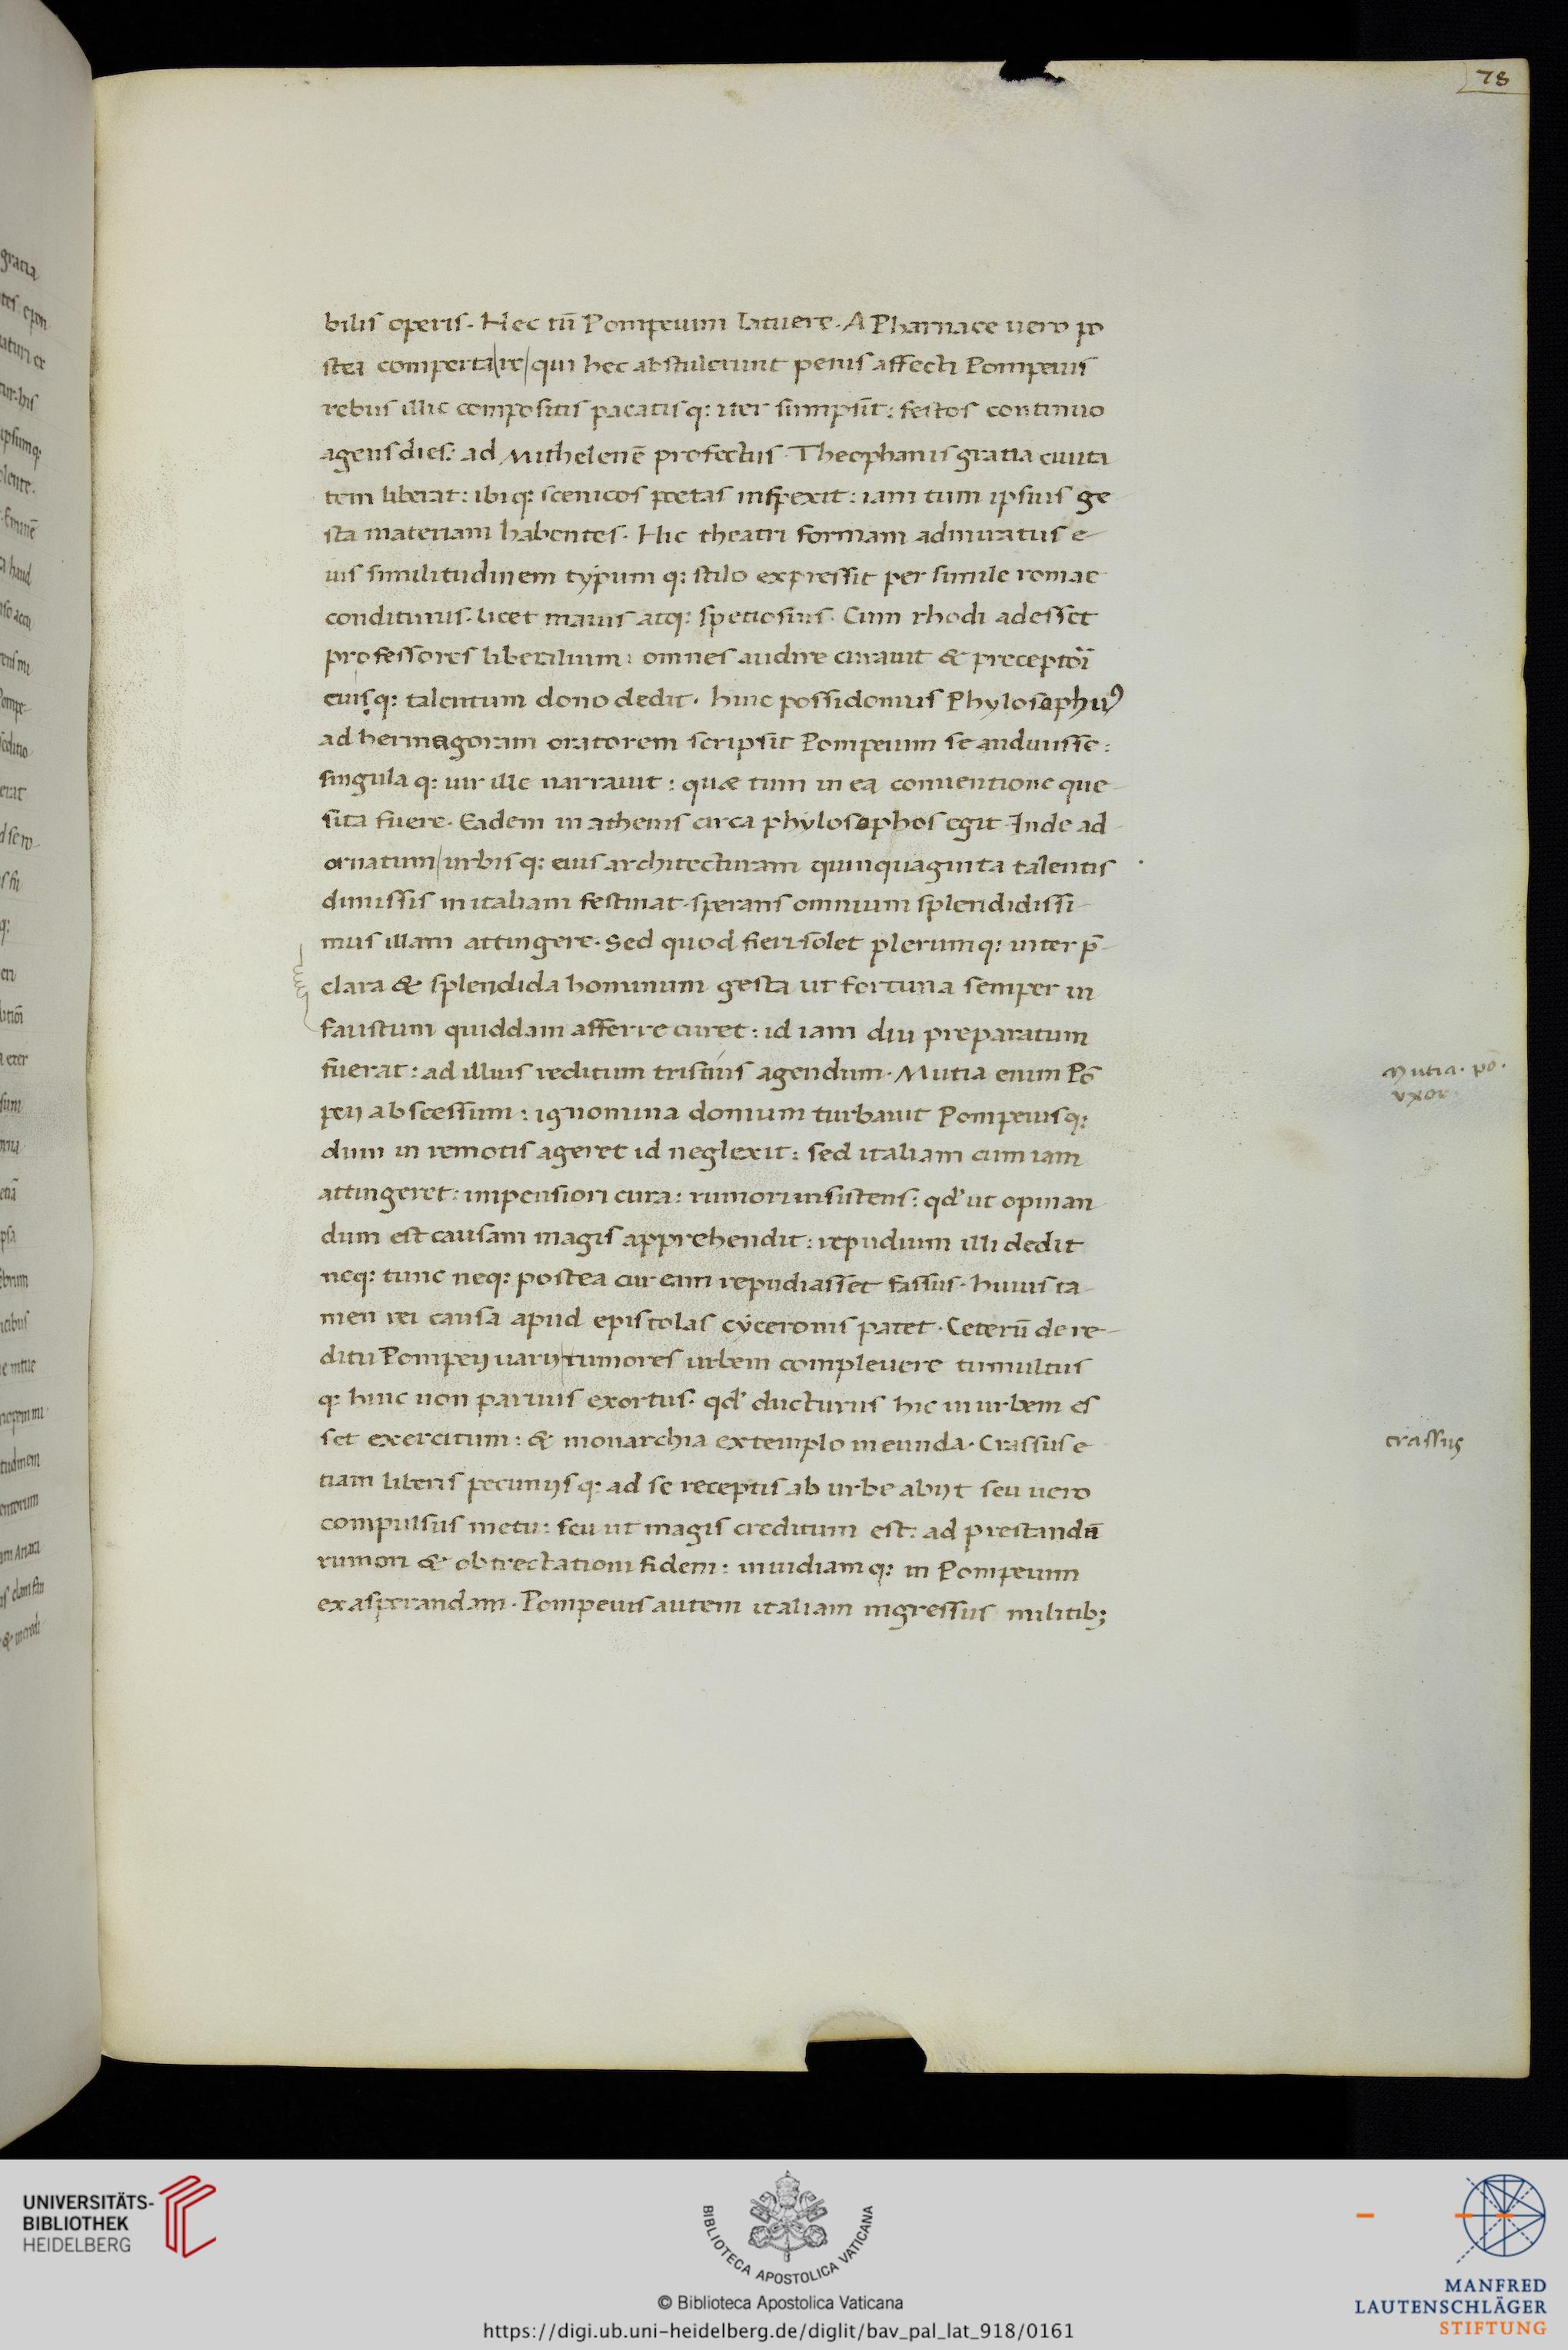 78
bilis operis. Hec tū Pompeium latuere. A Pharnace uero po
stea comperta|re|qui hec abstulerunt penis affecti Pompeius
rebus illic compositis pacatisq: iter sumpsit: festos continuo
agens dies: ad Mithelenē profectus. Theophanis gratia ciuita
tem liberat: ibiq: scenicos poetas inspexit: iam tum ipsius ge
sta materiam habentes. Hic theatri formam admiratus e-
ius similitudinem typum q: stilo expressit per simile romae
conditurus. licet maius atq: spetiosius. Cum rhodi adesset
professores liberalium: omnes audire curauit & preceptoꝝ
cuisq: talentum dono dedit. hinc possidonius Phylosophuꝰ
ad hermagoram oratorem scripsit Pompeium se audiuisse:
singula q: uir ille narrauit: quæ tum in ea conuentione que
sita fuere. Eadem in athenis circa phylosophos egit. Inde ad
ornatum|urbis q: eius architecturam quinquaginta talentis
dimissis in italiam festinat. sperans omnium splendidissi
mus illam attingere. Sed quod fieri solet plerumq: inter p̄
clara & splendida hominum gesta ut fortuna semper in
faustum quiddam afferre curet: id iam diu preparatum
fuerat: ad illius reditum tristius agendum. Mutia enim Pō
peij abscessum: ignominia domum turbauit Pompeiusq:
dum in remotis ageret id neglexit: sed italiam cum iam
attingeret: impensiori cura: rumori insistens: qd' ut opinan
dum est causam magis apprehendit: repudium illi dedit
neq: tunc neq: postea cur eam repudiasset fassus. huius ta
men rei causa apud epistolas cyceronis patet. Ceterū de re-
ditu Pompeij uarij|rumores urbem compleuere tumultus
q: hinc non paruus exortus. qd' ducturus hic in urbem es
set exercitum: & monarchia extemplo ineunda. Crassus e
tiam liberis pecunijsq: ad se receptis ab urbe abijt seu uero
compulsus metu: seu ut magis creditum est: ad prestandū
rumori & obtrectationi fidem: inuidiamq: in Pompeium
exasperandam. Pompeius autem italiam ingressus militib;
Mutia. pō.
vxor
crassus
UNIVERSITÄTS-
BIBLIOTHEK
HEIDELBERG
BIBLIOTECA APOSTOLICA VATICANA
© Biblioteca Apostolica Vaticana
https://digi.ub.uni-heidelberg.de/diglit/bav_pal_lat_918/0161
MANFRED
LAUTENSCHLÄGER
STIFTUNG